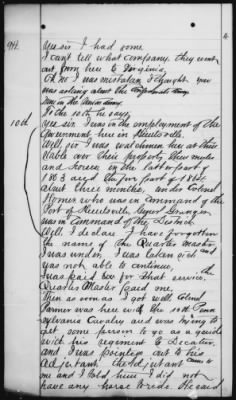 9th. yes sir I had some
I can't tell what company they went
out from here to Virginia.
Oh no I was mistaken I thought you
was asking about the Confederate Army
None in the Union Army.
To the 10th he says,
10th yes sir I was in the employment of the
Government, here in Huntsville.
Well sir I was watchman here at their
stable over their property, their mules
and horses in the latter part of
1863 and the fore part of 1864
about three months, under Colonel
Horner who was in command of the
Post of Huntsville, Genrl Granger
was in Command of the District
Well, I declare I have forgotten
the name of the Quarter Master
I was under, I was taken sick and
was not able to continue,
I was paid for that service. the
Quarter Master paid me,
Then as soon as I got well Colonel
Parmer was here with the 10th Penn
sylvania Cavalry and was trying to
get some person to go as a guide
with his regiment to Decatur,
and I was pointed out to his
Adjutant. the Adjutant came to
me and I told him I did not
have any horse to ride He said